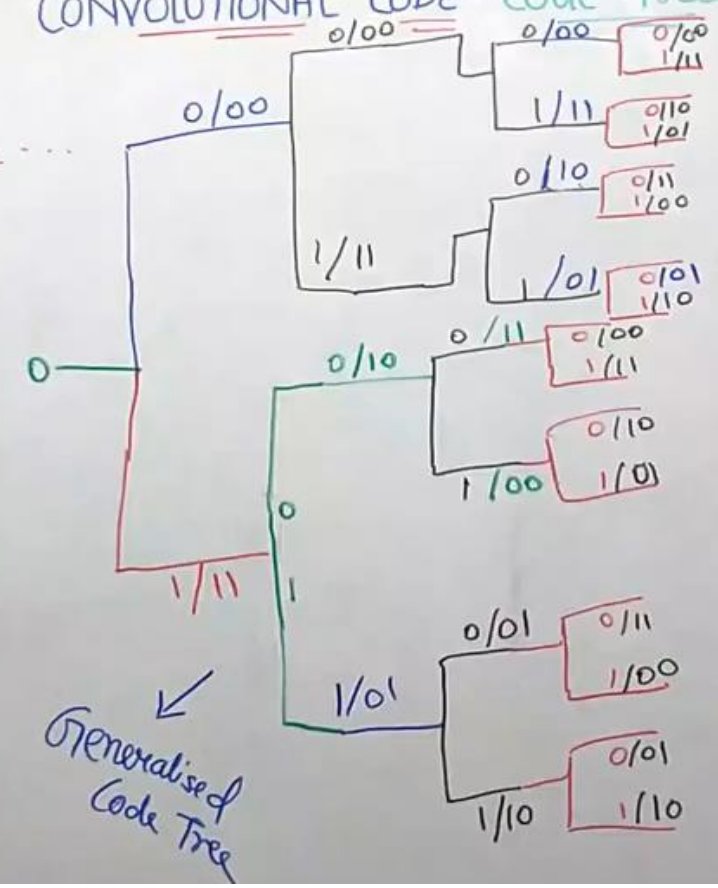 CONVOLUTIONAL CODE CODE
0/00
0/00
0/00
0/00
1/11
1/11
0/10
1/01
1/11
0/10
0/11
1/00
1/01
0/01
1/10
0
1/11
0/10
0/11
0/00
1/11
1/00
0/10
1/01
0
1
1/01
0/01
0/11
1/00
1/10
0/01
1/10
Generalised
Code Tree